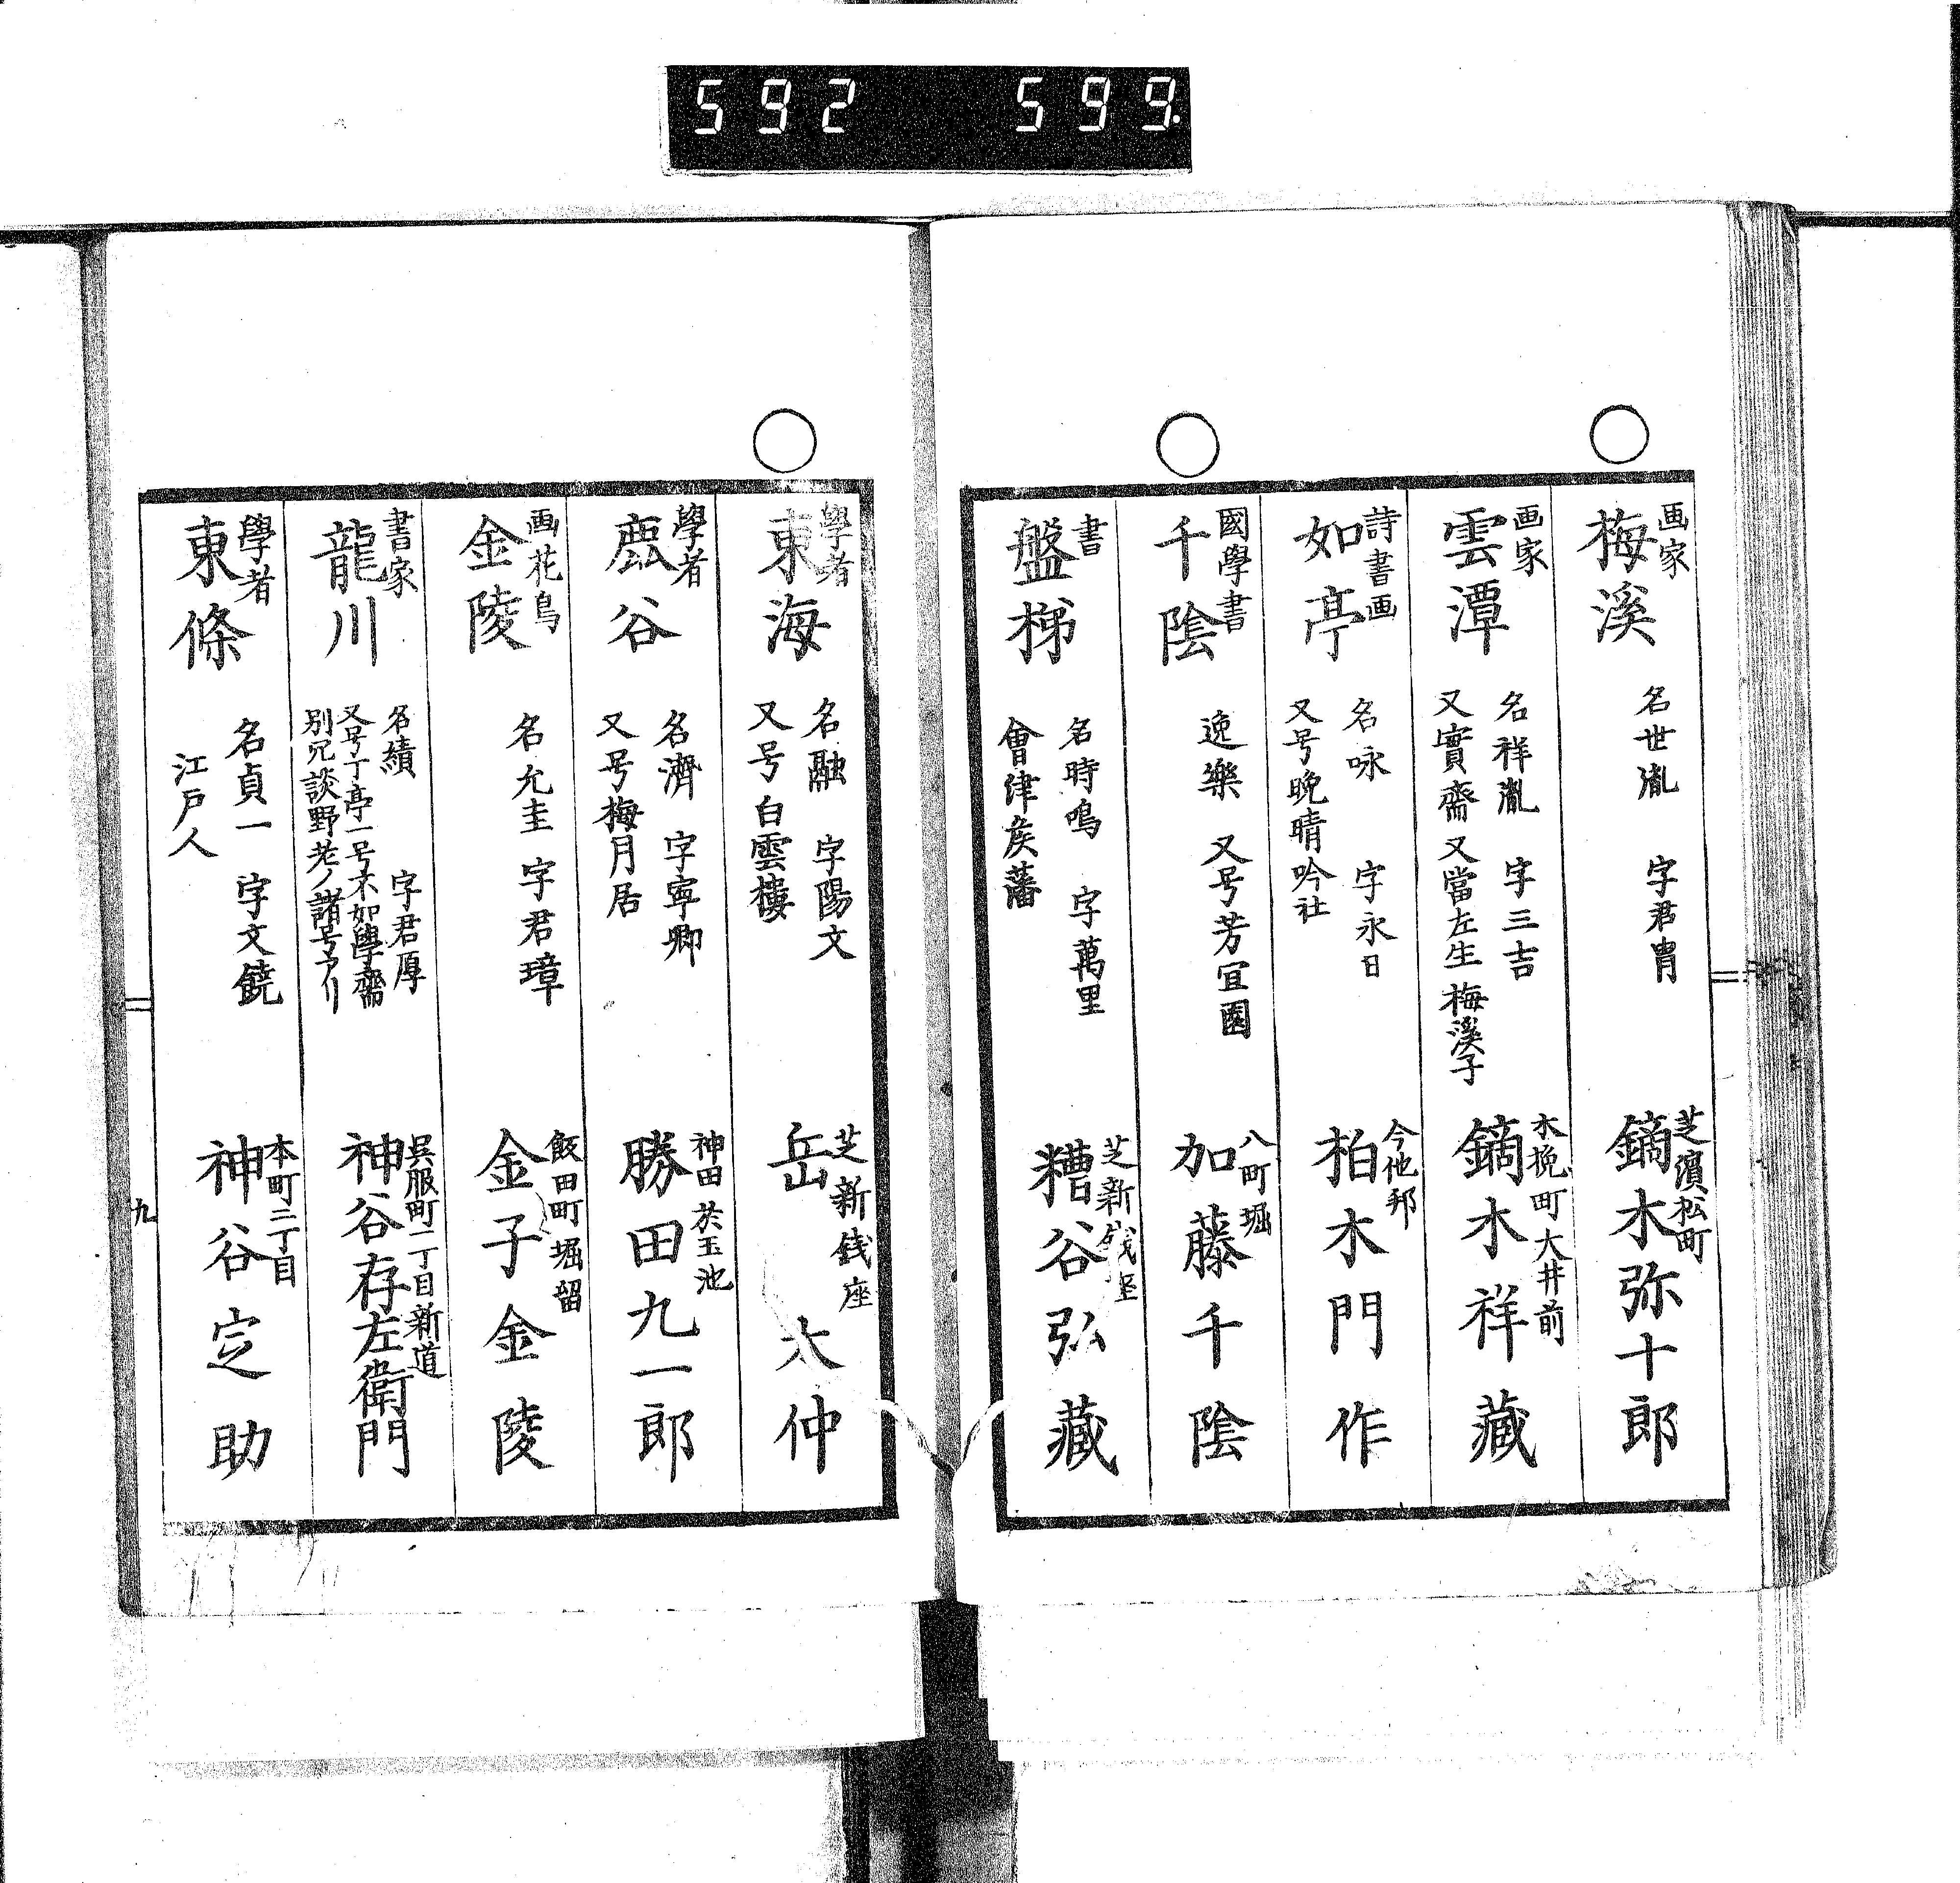 592 599.
画家
梅溪
名世胤 字君冑
芝濵松町
鏑木弥十郎
画家
雲潭
名祥胤 字三吉
又實齋 又當左生 梅溪子
木挽町大井前
鏑木祥藏
詩書画
如亭
名咏 字永日
又号晩晴吟社
今他邦
柏木門作
國學書
千陰
逸樂 又号芳宜園
八町堀
加藤千陰
書
盤梯
名時鳴 字萬里
會津矦藩
芝新銭座
糟谷弘藏
學者
東海
名融 字陽文
又号白雲樓
芝新銭座
岳太仲
學者
鹿谷
名濟 字寧卿
又号梅月居
神田於玉池
勝田九一郎
画花鳥
金陵
名允圭 字君璋
飯田町堀留
金子金陵
書家
龍川
名績 字君厚
又号丁亭一号不如學齋
別冗談野老ノ諸号アリ
呉服町一丁目新道
神谷存左衛門
學者
東條
名貞一 字文饒
江戸人
本町二丁目
神谷定助
九